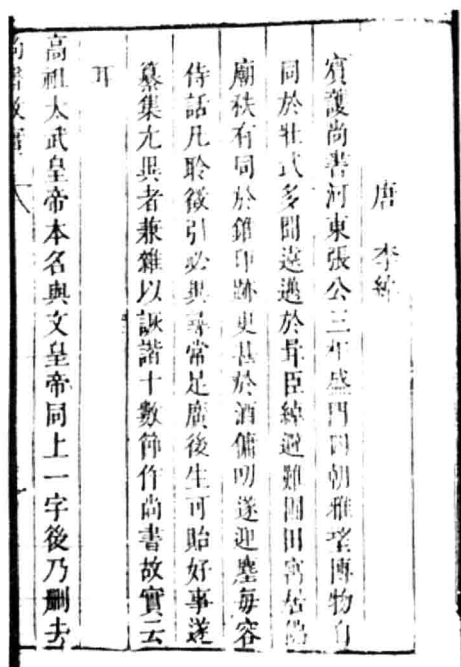 唐 李綽
賓護尚書河東張公三相盛門四朝雅望博物自
同於壯武多聞遠邁於胥臣綽避難圃田寓居佛
廟秩有同於錐印跡更甚於酒傭叨遂迎塵每容
侍話凡聆徵引必異尋常足廣後生可貽好事遂
纂集尤異者兼雜以詼諧十數節作尚書故實云
耳
高祖太武皇帝本名與文皇帝同上一字後乃刪去
尚書故實